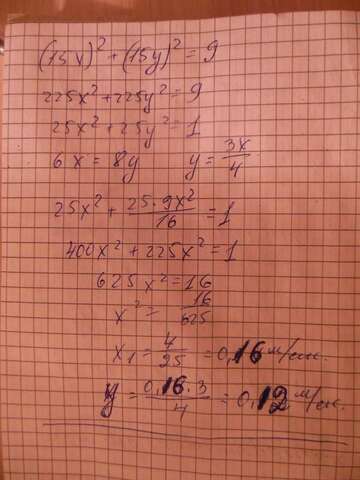 (15x)² + (15y)² = 9
225x² + 225y² = 9
25x² + 25y² = 1
6x = 8y y = 3x/4
25x² + 25·9x²/16 = 1
400x² + 225x² = 1
625x² = 16
x² = 16/625
x₁ = 4/25 = 0,16 м/сек.
y = 0,16·3/4 = 0,12 м/сек.